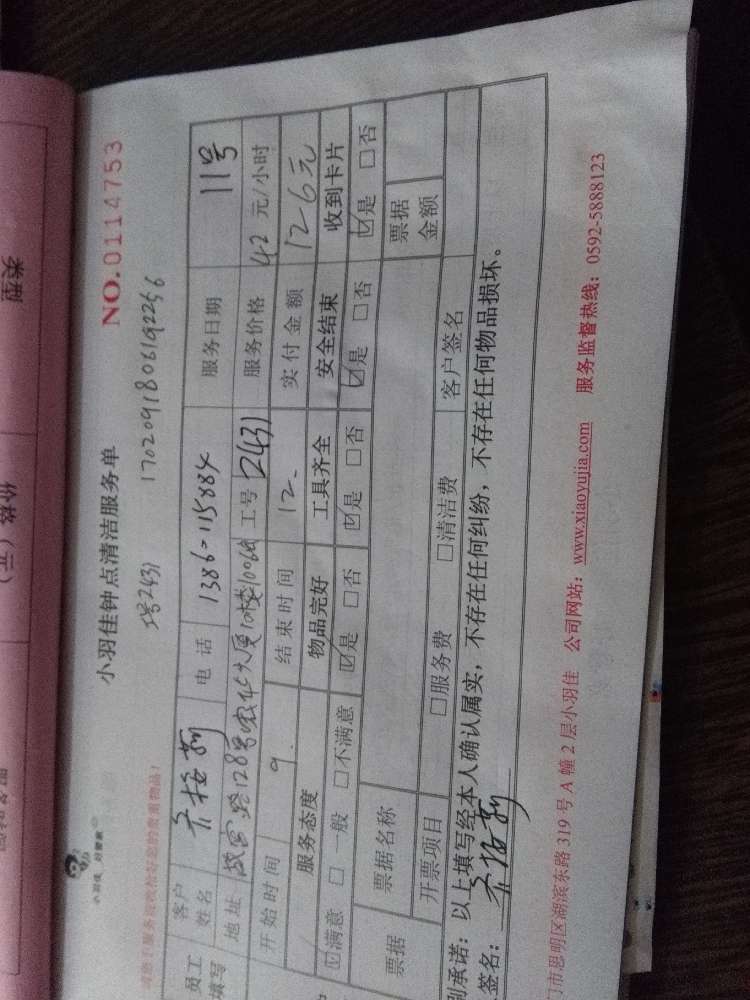 小羽佳钟点清洁服务单
NO.0114753
工号2431 1702091806192256
员工填写
客户姓名
电话 1386-115884
服务日期 11号
地址 128号 大厦 工号 2431
服务价格 42 元/小时
开始时间 9. 结束时间 12. 实付金额 126元
服务态度 物品完好 工具齐全 安全结束 收到卡片
☑满意 □一般 □不满意 ☑是 □否 ☑是 □否 ☑是 □否 ☑是 □否
票据 票据名称 票据金额
开票项目 □服务费 □清洁费 客户签名
别承诺：以上填写经本人确认属实，不存在任何纠纷，不存在任何物品损坏。
签名：
门市思明区湖滨东路 319 号 A 幢 2 层小羽佳 公司网站：www.xiaoyujia.com 服务监督热线：0592-5888123
类型
价格（元）